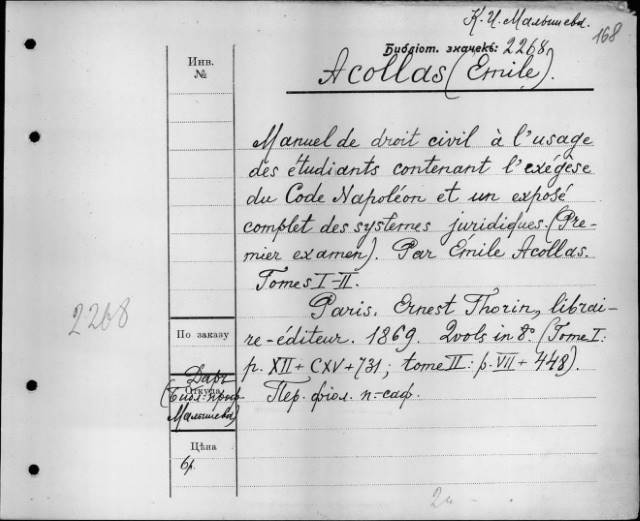 К. И. Малышева.
168
Библіот. значекъ: 2268
Acollas (Émile).
Инв.
№
Manuel de droit civil à l'usage
des étudiants contenant l'exégèse
du Code Napoléon et un exposé
complet des systemes juridiques. (Pre-
mier examen). Par Émile Acollas.
Tomes I-II.
Paris. Ernest Thorin, librai-
re-éditeur. 1869. 2 vols in 8°. (Tome I:
p. XII + CXV + 731; tome II: p. VII + 448).
Пер. фіол. п-саф.
2268
По заказу
Даръ
Откуда
(Библ. проф
Малышева)
Цѣна
6р